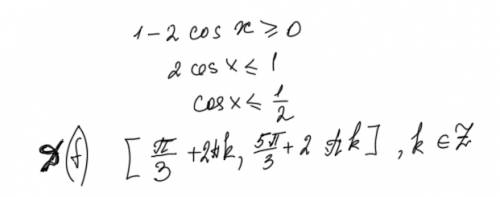 1 - 2 cos x ≥ 0
2 cos x ≤ 1
cos x ≤ 1/2
D(f) [π/3 + 2πk, 5π/3 + 2πk], k ∈ Z